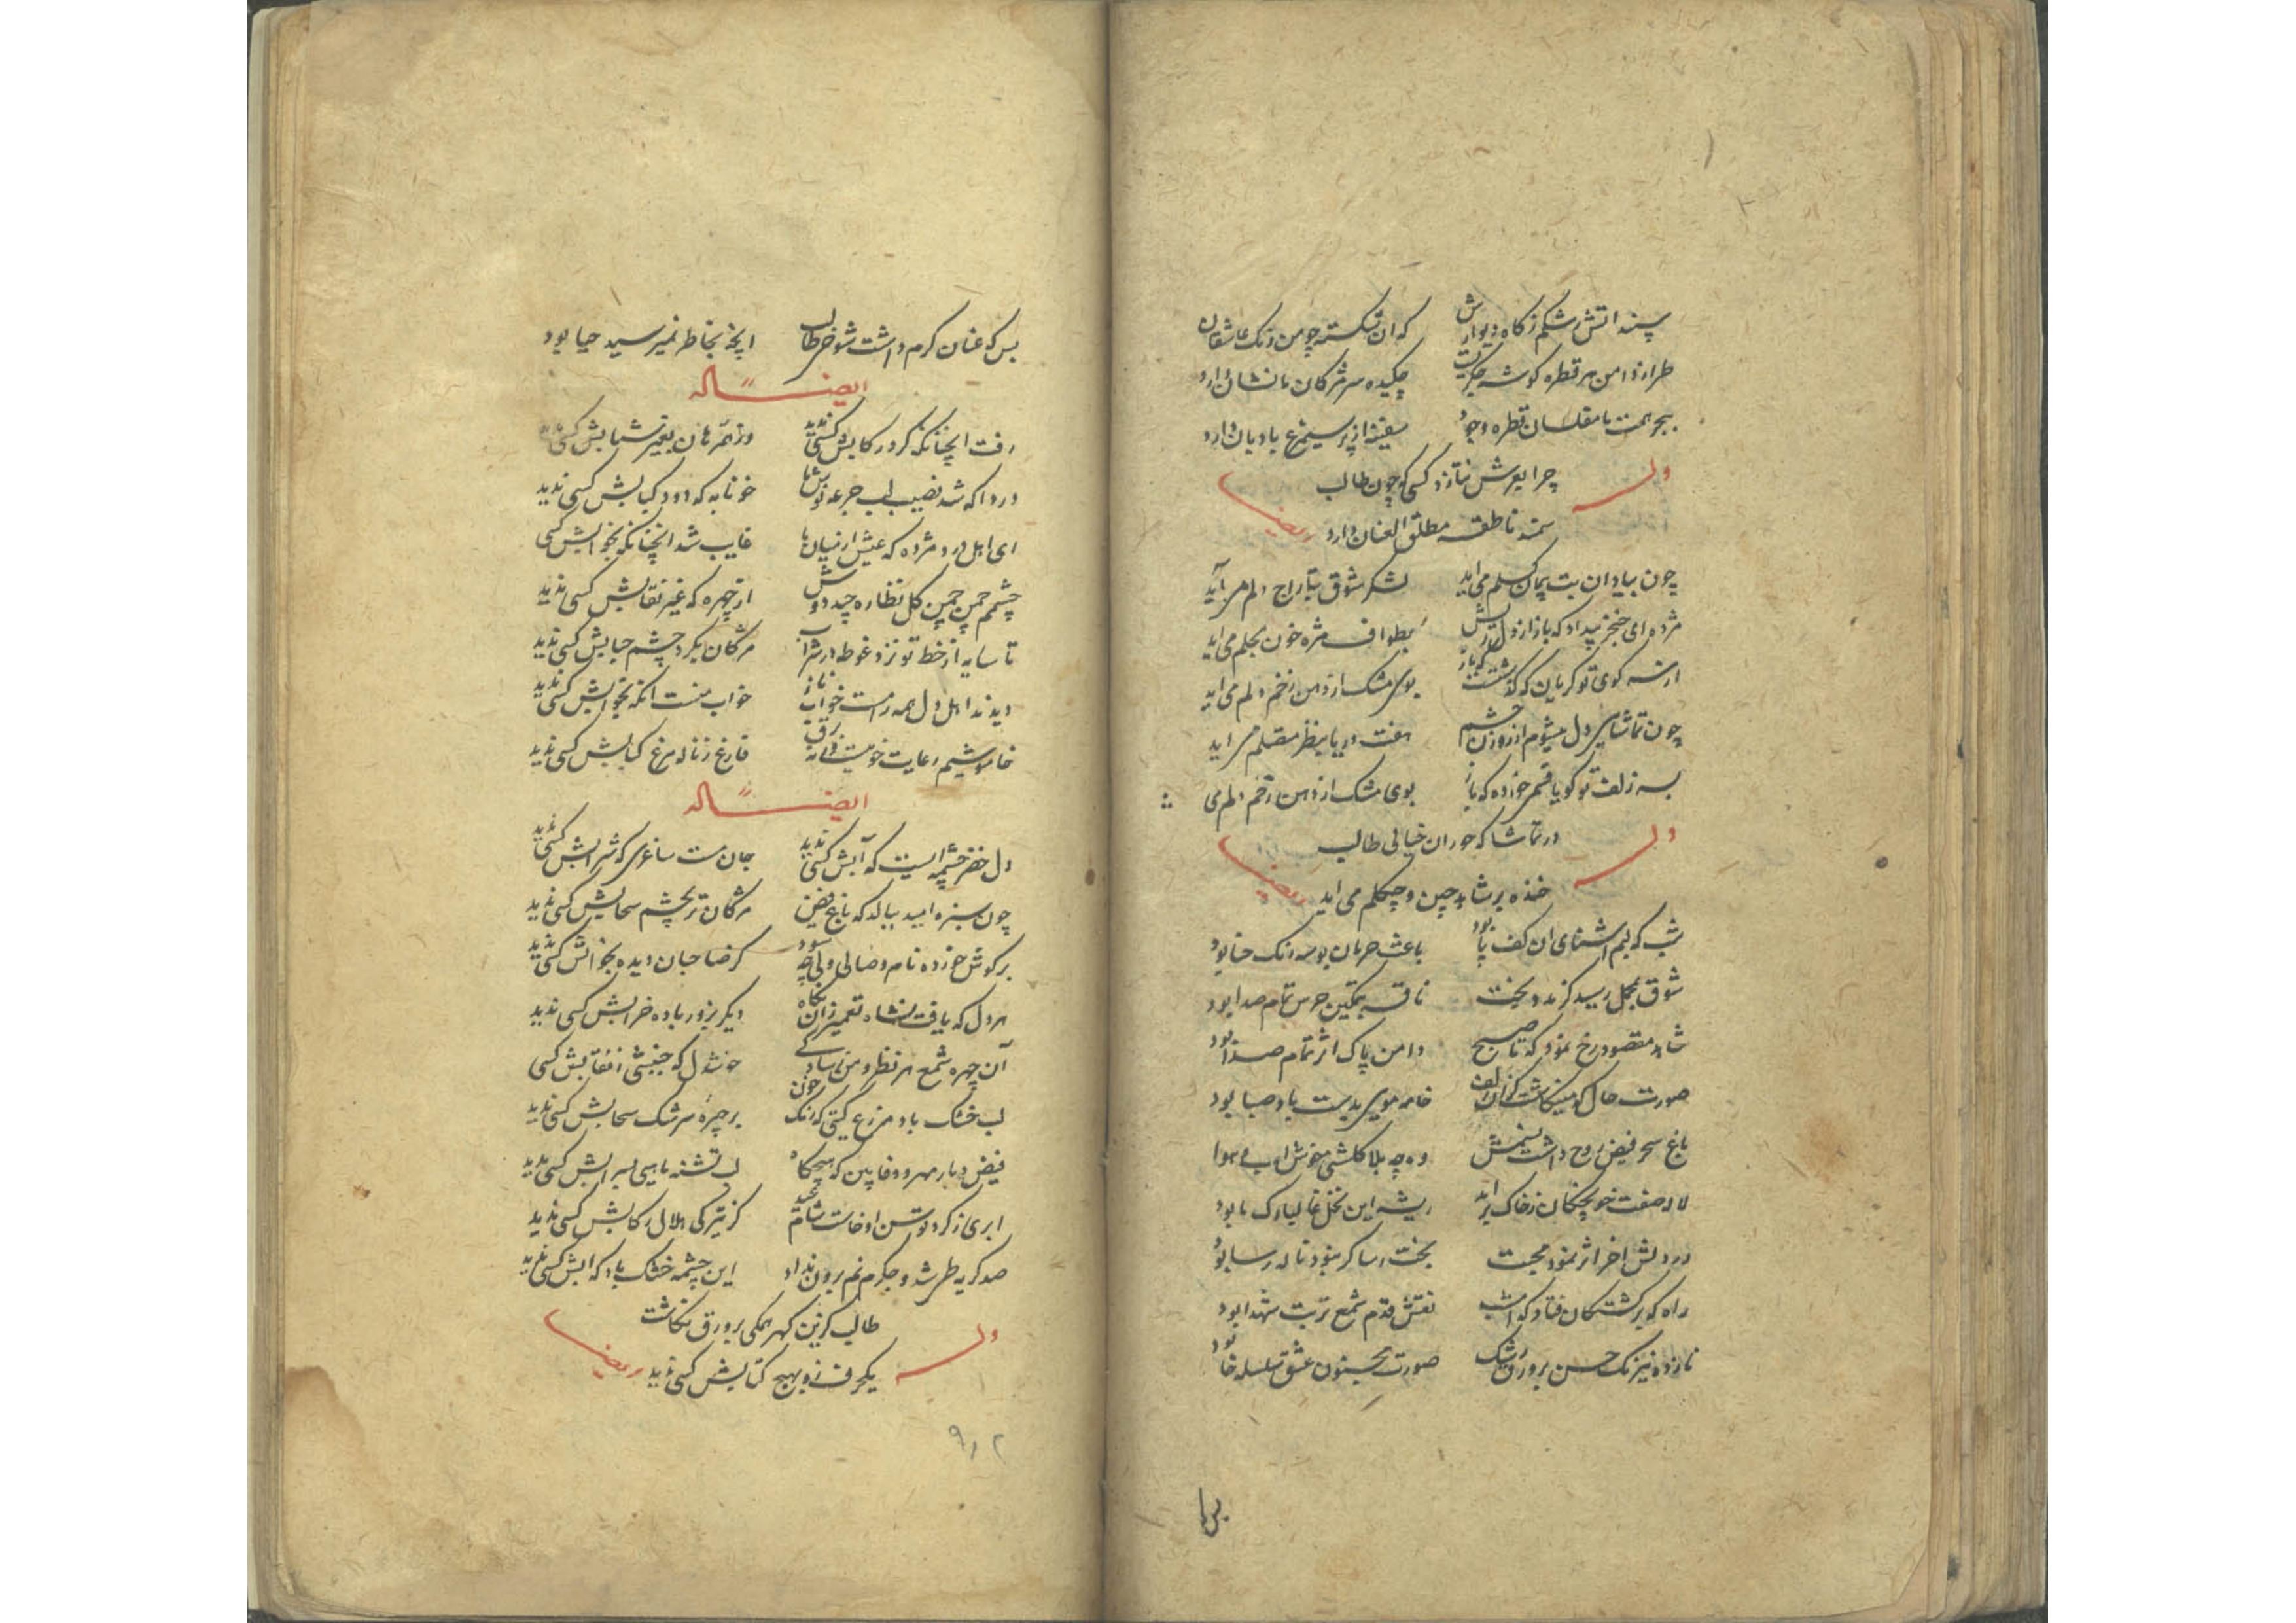 پسند اتش رشکم ز کاه دیوارش که ان شکسته چو من رنک عاشقان
طراز دامن هر قطره کوشه جکریست چکیده سر مژکان ما نشان دارد
ببحر همت ما مفلسان قطره وجود سفینه از پر سیمرغ بادبان دارد
وله
چرا بعرش نتازد کسی که چون طالب
سمند ناطقه مطلق العنان دارد
ایضا
چون بیاد ان بت پیمان کسلم می اید لشکر شوق بتاراج دلم می آید
مژده ای خنجر بیداد که باز از دل ریش بطواف مژه خون بحلم می اید
از سر کوی تو کریان که کذشت که باز بوی مشک از دهن زخم دلم می اید
چون تماشایی دل میشوم از روزن چشم هفت دریا بنظر متصلم می اید
بسر زلف تو کویا قسمی خورده که باز بوی مشک از دهن زخم دلم می
وله
در تماشا که حوران خیالی طالب
خنده بر شاهد چین و چکلم می اید
ایضا
شب که لبم اشنای ان کف پا بود باعث حرمان بوسه رنک حنا بود
شوق بمحمل رسید کرمرو بخت ناقه بتمکین جرس تمام صدا بود
شاهد مقصود رخ نمود که تا صبح دامن پاک اثر تمام صدا بود
صورت حال که مینکاشت کزان زلف خامه مویی بدست باد صبا بود
باغ سحر فیض روح داشت نسیمش وه چه بلا کلشنی خوش اب و هوا
لاله صفت خونچکان ز خاک براید ریشه این نخل غالبا رک ما بود
در دلش اخر اثر نمود محبت بخت رسا کر نبود ناله رسا بود
راه که بر کشتکان فتاد که امشب نقش قدم شمع تربت شهدا بود
نازده نیرنک حسن بر ورق رشک صورت مجنون عشق سلسله خا بود
بس که
بس که عنان کرم داشت شوخی طالب انچه بخاطر نمیرسید حیا بود
ایضا له
رفت انچنانکه کرد رکابش کسی ندید وز همرهان بغیر شتابش کسی ندید
دردا که شد نصیب لب جرعه نوش ما خونابه که دود کبابش کسی ندید
ای اهل درد مژده که عیش از میان ما غایب شد انچنانکه بخوابش کسی
چشمم چمن چمن کل نظاره چید دوش از چهره که غیر نقابش کسی ندید
تا سایه از خط تو نزد غوطه در شراب مژکان بکرد چشم حبابش کسی ندید
دیدند اهل دل همه را مست خواب ناز خواب منست انکه بخوابش کسی ندید
خاموشیم رعایت خوی فارغ ز ناله مرغ کبابش کسی ندید
ایضا له
دل خضر چشمه ایست که آبش کسی ندید جان مست ساغری که شرابش کسی ندید
چون سبزه امید ببالد که باغ فیض مژکان تر بچشم سحابش کسی ندید
بر کوش خورده نام وصالی ولی چه سود کز صاحبان دیده بخوابش کسی ندید
هر دل که یافت نشاه تعمیر زان نکاه دیکر بزور باده خرابش کسی ندید
آن چهره شمع هر نظر و من بسادکی خوشدل که جنبشی ز نقابش کسی
لب خشک باد مزرع کیتی که رنک خون بر چهره سرشک سحابش کسی ندید
فیض دیار مهر و وفا بین که هیچکاه لب تشنه بسرابش کسی ندید
ابری ز کرد توسن او خاست شام عید کز تیرکی هلال رکابش کسی ندید
صد کریه طی شد و جکرم نم برون نداد این چشمه خشک باد که ابش کسی ندید
طالب کزین کهر همکی بر ورق نکاشت
وله
یکحرف زو بهیچ کتابش کسی ندید
ایضا
۹۱۲